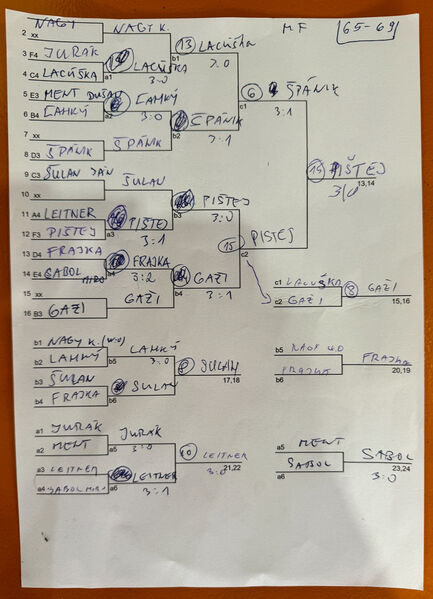 NAGY NAGY K. MF 65-69
2 xx 13 LACÚŠKA
3 F4 JURÁK b1
4 C4 LACÚŠKA LACÚŠKA 3:0
a1 3:0 c1 6 ŠPÁNIK
5 E3 MENT DUŠAN 3:1
6 B4 ĽAHKÝ ĽAHKÝ
a2 3:0 ŠPÁNIK
7 xx b2 3:1
8 D3 ŠPÁNIK ŠPÁNIK
9 C3 ŠULAN JÁN ŠULAN PIŠTEJ
10 xx 13,14
11 A4 LEITNER PIŠTEJ
12 F3 PIŠTEJ PIŠTEJ b3 3:0
a3 3:1 15 PIŠTEJ
13 D4 FRAJKA FRAJKA c2
14 E4 a4 3:2 GAŽI
15 xx b4 3:1
16 B3 GAŽI GAŽI
c1 LACÚŠKA 8 GAŽI
c2 GAŽI 15,16
b1 NAGY K. (W:O) ĽAHKÝ
b2 ĽAHKÝ b5 3:0 ŠULAN
17,18
b3 ŠULAN ŠULAN
b4 FRAJKA b6
b5 FRAJKA
b6 FRAJKA 20,19
a1 JURÁK JURÁK
a2 MENT a5 3:0 10 LEITNER
21,22 3:0
a3 LEITNER LEITNER
a4 a6 3:1
a5 MENT SABOL
a6 SABOL 23,24
3:0